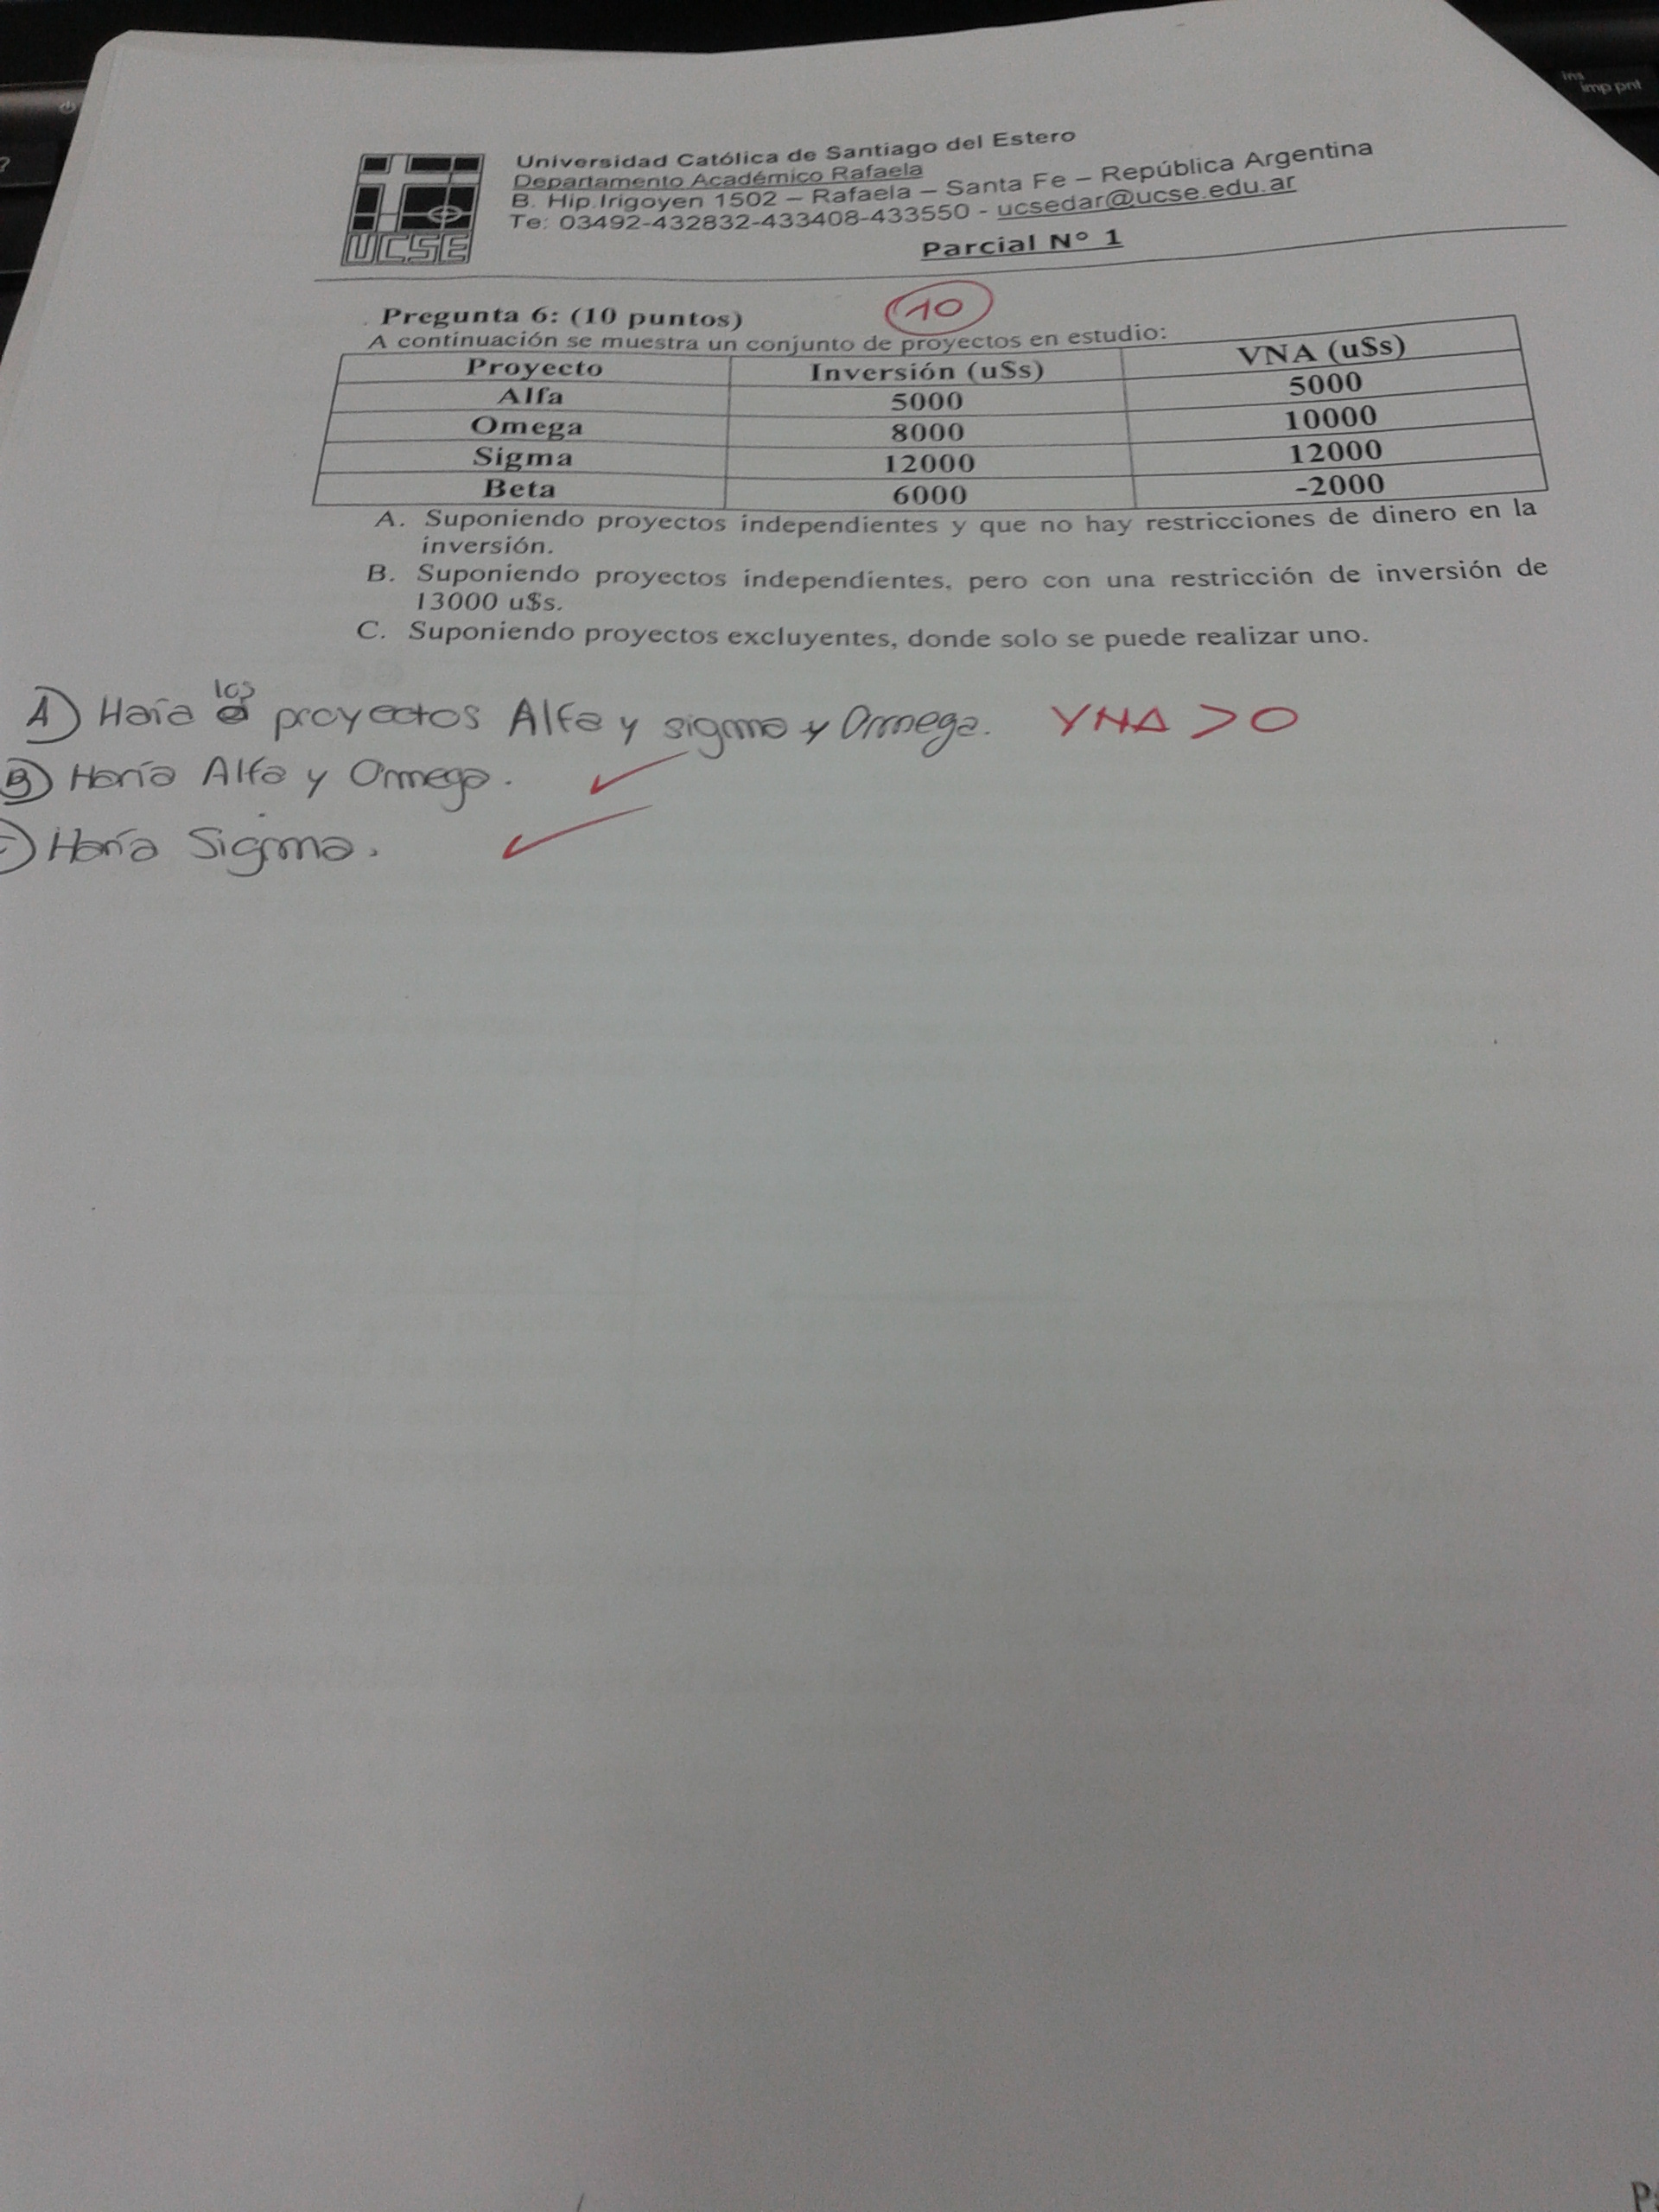 ins
imp pnt
?
UCSE
Universidad Católica de Santiago del Estero
Departamento Académico Rafaela
B. Hip.Irigoyen 1502 – Rafaela – Santa Fe – República Argentina
Te: 03492-432832-433408-433550 - ucsedar@ucse.edu.ar
Parcial N° 1
Pregunta 6: (10 puntos)
10
A continuación se muestra un conjunto de proyectos en estudio:
Proyecto Inversión (u$s) VNA (u$s)
Alfa 5000 5000
Omega 8000 10000
Sigma 12000 12000
Beta 6000 -2000
A. Suponiendo proyectos independientes y que no hay restricciones de dinero en la
inversión.
B. Suponiendo proyectos independientes, pero con una restricción de inversión de
13000 u$s.
C. Suponiendo proyectos excluyentes, donde solo se puede realizar uno.
A) Haría los proyectos Alfa y sigma y Omega. VNA > 0
B) Haría Alfa y Omega.
C) Haría Sigma.